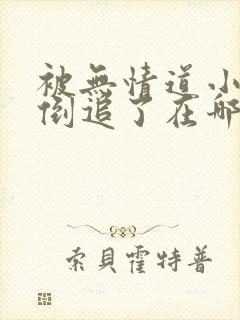 被無情道小
倒追了在哪
索貝霍特普